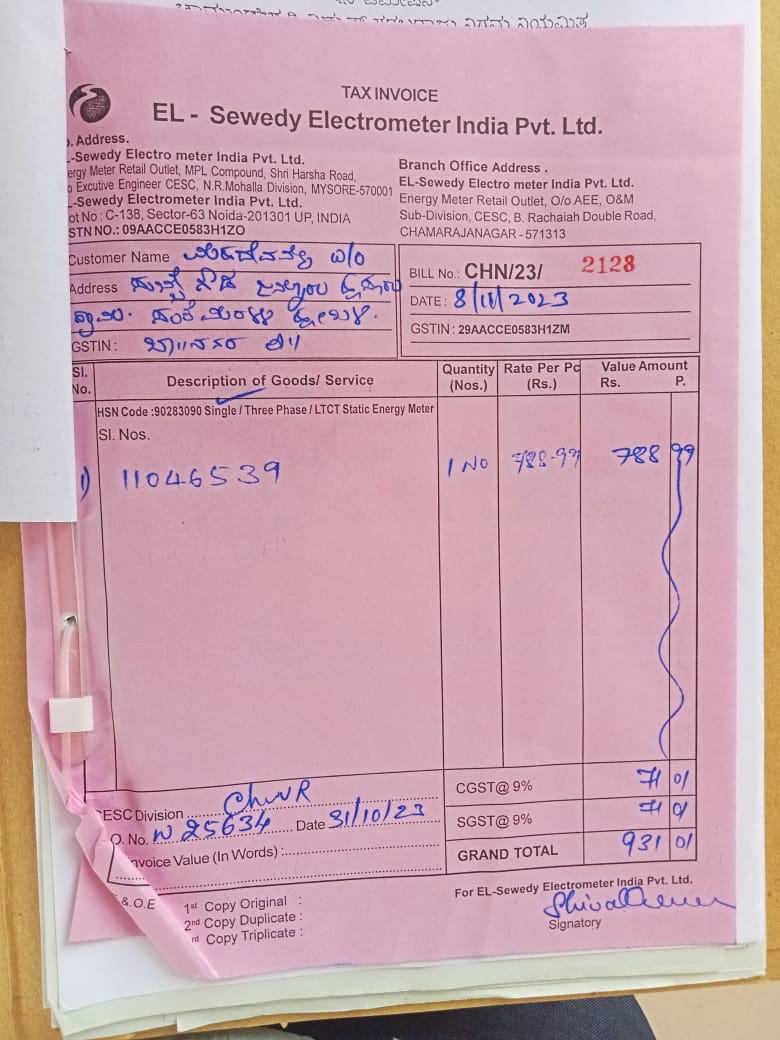 TAX INVOICE
EL - Sewedy Electrometer India Pvt. Ltd.
. Address.
-Sewedy Electro meter India Pvt. Ltd.
ergy Meter Retail Outlet, MPL Compound, Shri Harsha Road,
o Excutive Engineer CESC, N.R.Mohalla Division, MYSORE-570001
-Sewedy Electrometer India Pvt. Ltd.
ot No : C-138, Sector-63 Noida-201301 UP, INDIA
STN NO.: 09AACCE0583H1ZO
Branch Office Address .
EL-Sewedy Electro meter India Pvt. Ltd.
Energy Meter Retail Outlet, O/o AEE, O&M
Sub-Division, CESC, B. Rachaiah Double Road,
CHAMARAJANAGAR - 571313
Customer Name
Address
GSTIN :
BILL No.: CHN/23/ 2128
DATE : 8/11/2023
GSTIN : 29AACCE0583H1ZM
Sl. No. Description of Goods/ Service Quantity (Nos.) Rate Per Pc (Rs.) Value Amount Rs. P.
HSN Code :90283090 Single / Three Phase / LTCT Static Energy Meter
Sl. Nos.
1) 11046539 1 No 788-99 788 99
CGST@ 9% 71 01
SGST@ 9% 71 01
GRAND TOTAL 931 01
ESC Division ChNR
O. No. W 25634 Date 31/10/23
nvoice Value (In Words) :
& O.E
1st Copy Original :
2nd Copy Duplicate :
rd Copy Triplicate :
For EL-Sewedy Electrometer India Pvt. Ltd.
Signatory